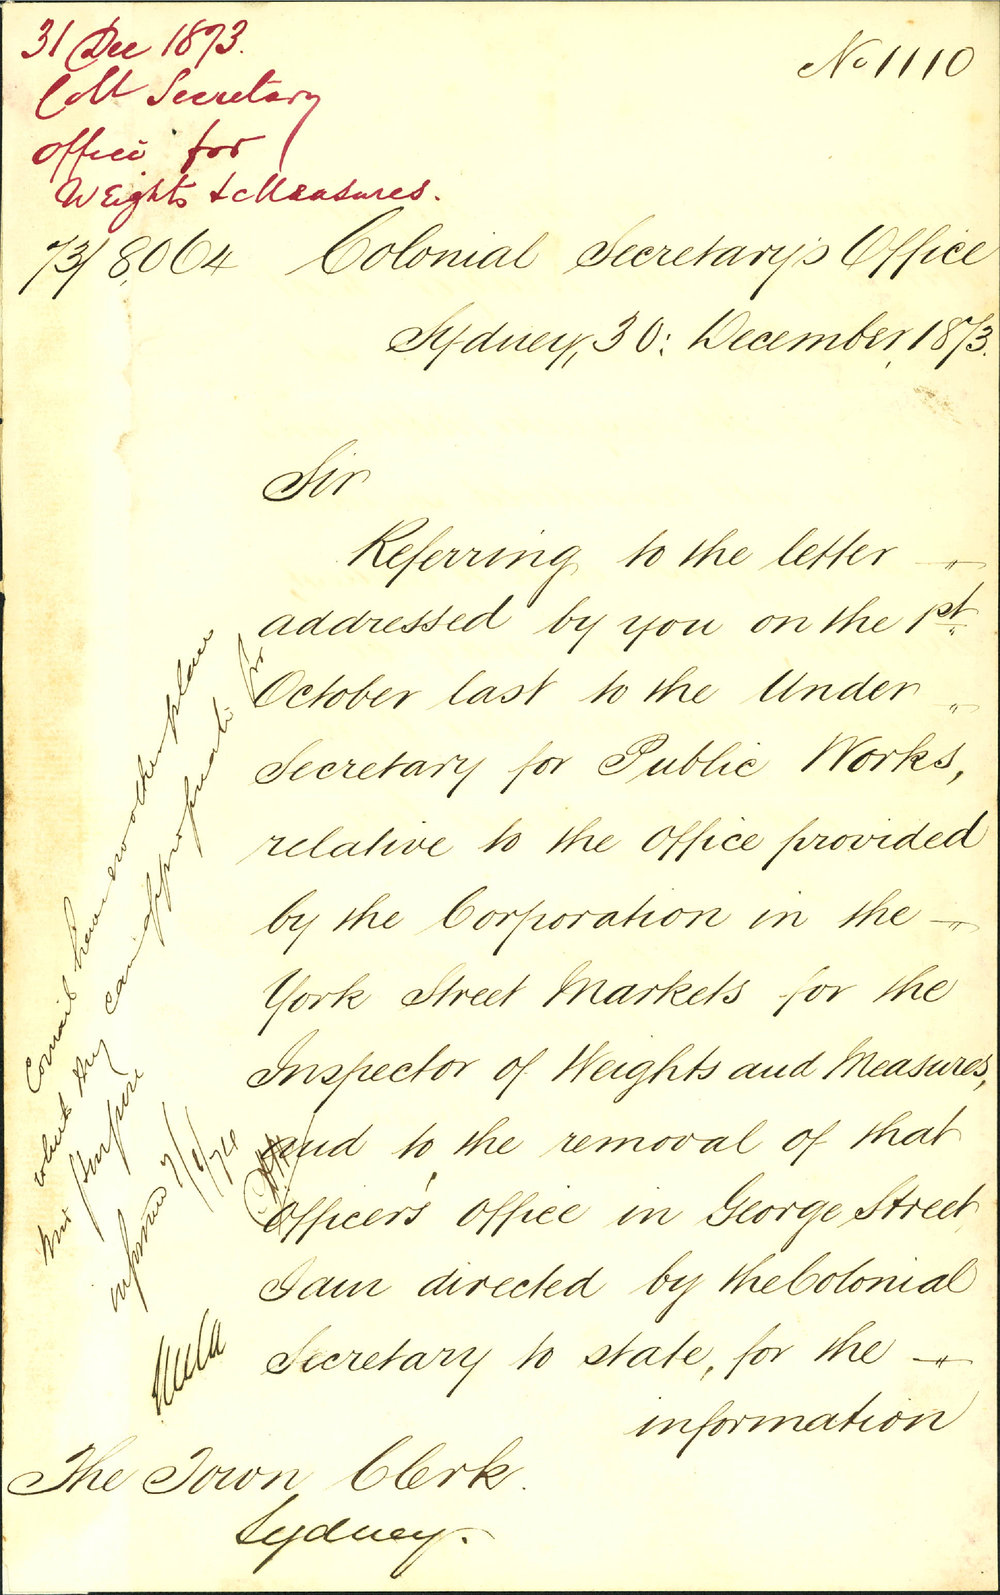 31 Dec 1873.
Coll Secretary
office for
Weights & Measures.
No 1110
73/8064 Colonial Secretary's Office
Sydney, 30: December, 1873.
Sir
Referring to the letter
addressed by you on the 1st
October last to the Under
Secretary for Public Works,
relative to the Office provided
by the Corporation in the
York Street Markets for the
Inspector of Weights and Measures,
and to the removal of that
Officer's Office in George Street
I am directed by the Colonial
Secretary to state, for the
information
The Town Clerk.
Sydney.
Council have no other place
which they can appropriate for
this purpose
informed 7/1/74